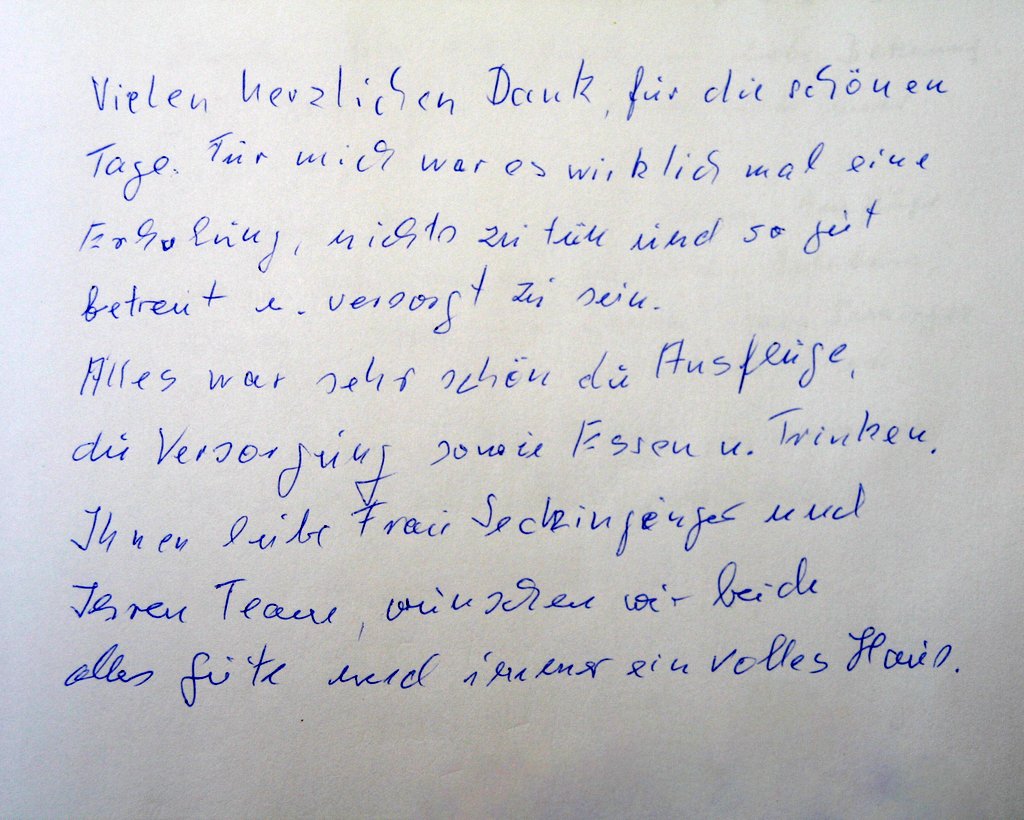 Vielen herzlichen Dank, für die schönen
Tage. Für mich war es wirklich mal eine
Erholung, nichts zu tun und so gut
betreut u. versorgt zu sein.
Alles war sehr schön die Ausflüge,
die Versorgung sowie Essen u. Trinken.
Ihnen liebe Frau und
Ihren Team, wünschen wir beide
alles gute und immer ein volles Haus.